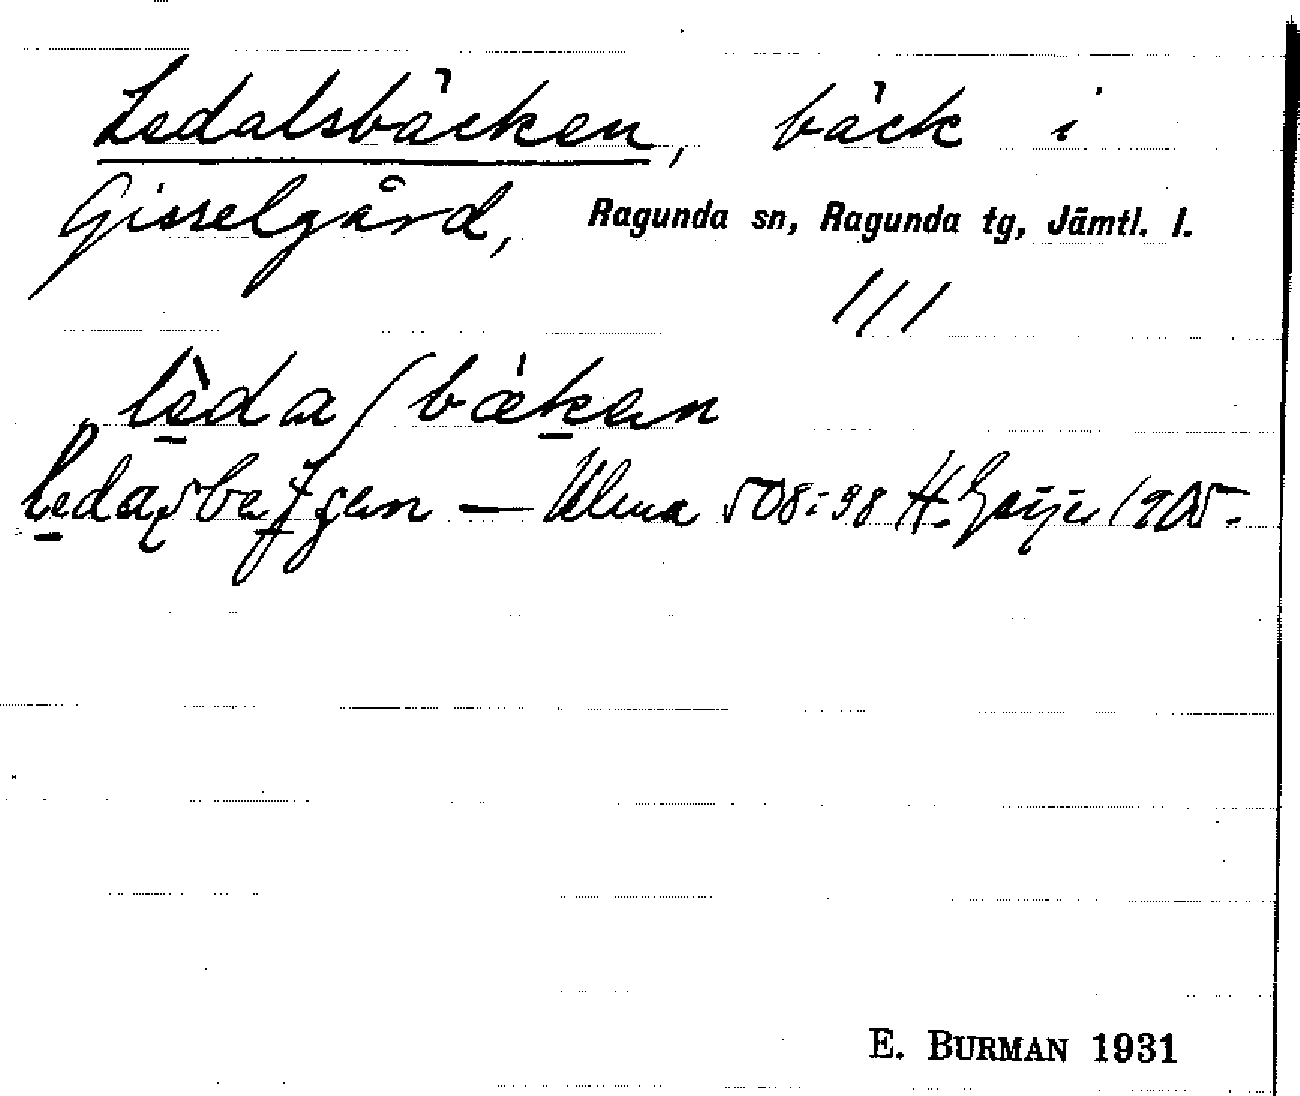 Ledalsbäcken, bäck i
Gisselgård, Ragunda sn, Ragunda tg, Jämtl. l.
///
lèdaʃbækan
— Ulma 508:98 H. Geijer 1905.
E. BURMAN 1931